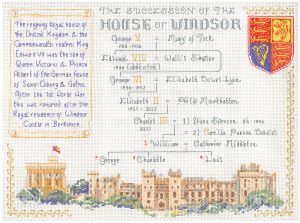 THE SUCCESSION OF THE
HOUSE OF WINDSOR
The reigning Royal house of
the United Kingdom & the
Commonwealth realms. King
Edward VII was the son of
Queen Victoria & Prince
Albert of the German house
of Saxe-Coburg & Gotha.
After the 1st World War
this was renamed after the
Royal residence of Windsor
Castle in Berkshire.
George V = Mary of Teck
1910 - 1936
Edward VIII = Wallis Simpson
1936 (abdicated)
George VI = Elizabeth Bowes-Lyon
1936 - 1952
Elizabeth II = Philip Mountbatten
1952 - 2022
Charles III = 1) Diana Spencer
2022 2) Camilla Parker Bowles
William = Catherine Middleton
George Charlotte Louis